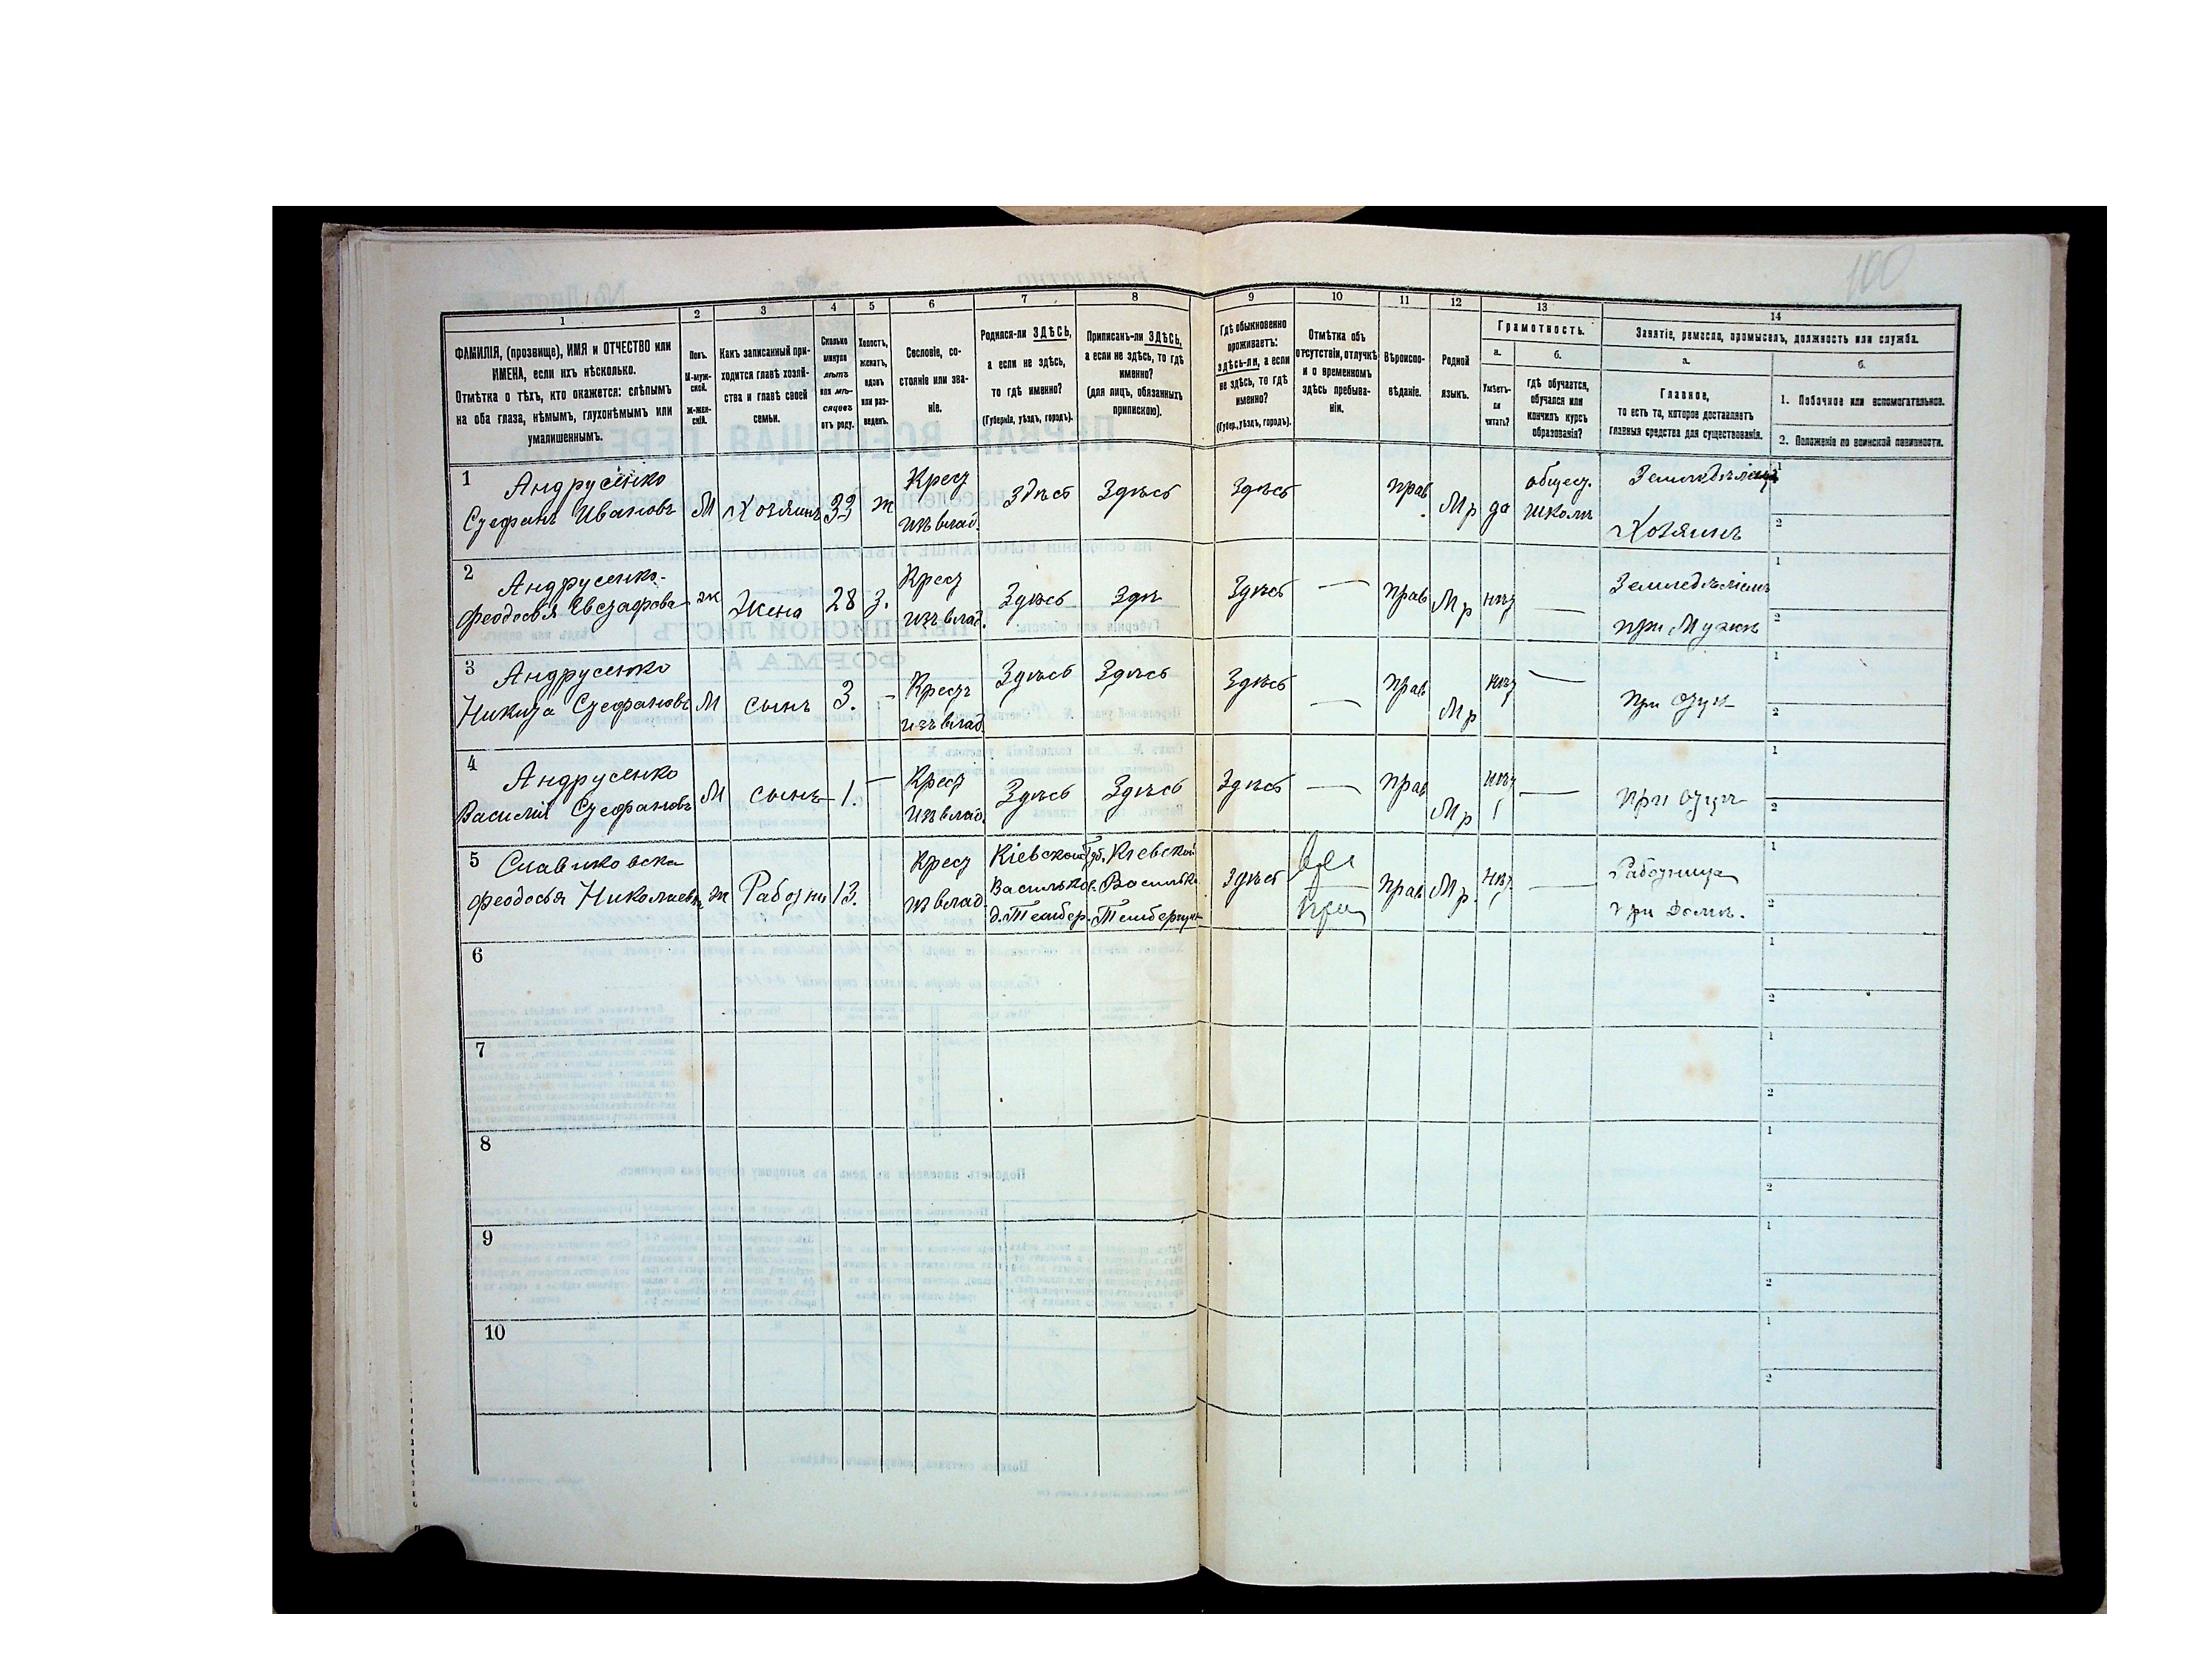 100
1 2 3 4 5 6 7 8 9 10 11 12 13 14
ФАМИЛІЯ, (прозвище), ИМЯ и ОТЧЕСТВО или
ИМЕНА, если ихъ нѣсколько.
Отмѣтка о тѣхъ, кто окажется: слѣпымъ
на оба глаза, нѣмымъ, глухонѣмымъ или
умалишеннымъ.
Полъ.
М-муж-
ской.
ж-жен-
скій.
Какъ записанный при-
ходится главѣ хозяй-
ства и главѣ своей
семьи.
Сколько
минуло
лѣтъ
или мѣ-
сяцевъ
отъ роду.
Холостъ,
женатъ,
вдовъ
или раз-
веденъ.
Сословіе, со-
стояніе или зва-
ніе.
Родился-ли ЗДѢСЬ,
а если не здѣсь,
то гдѣ именно?
(Губернія, уѣздъ, городъ).
Приписанъ-ли ЗДѢСЬ,
а если не здѣсь, то гдѣ
именно?
(для лицъ, обязанныхъ
припискою).
Гдѣ обыкновенно
проживаетъ:
здѣсь-ли, а если
не здѣсь, то гдѣ
именно?
(Губер., уѣздъ, городъ).
Отмѣтка объ
отсутствіи, отлучкѣ
и о временномъ
здѣсь пребыва-
ніи.
Вѣроиспо-
вѣданіе.
Родной
языкъ.
Грамотность.
а.
Умѣетъ-
ли
читать?
б.
гдѣ обучается,
обучался или
кончилъ курсъ
образованія?
Занятіе, ремесло, промыселъ, должность или служба.
а.
Главное,
то есть то, которое доставляетъ
главныя средства для существованія.
б.
1. Побочное или вспомогательное.
2. Положеніе по воинской повинности.
1 Андрусенко Крест общест. Земледѣліемъ 1
Стефанъ Ивановъ М Хозяинъ 33 ж изъ влад. здѣсь Здѣсь Здѣсь прав Мр да школы Хозяинъ 2
2 Андрусенко Крест Земледѣліемъ 1
Феодосья Евстафова ж Жена 28 з. изъ влад. Здѣсь Здѣ Здѣсь — прав Мр нѣт — при Мужѣ 2
3 Андрусенко 1
Никита Стефановъ М сынъ 3. - Крестъ изъ влад. Здѣсь Здѣсь Здѣсь — прав Мр нѣт — при Отцѣ 2
4 Андрусенко 1
Василій Стефановъ М сынъ 1. — Крест изъ влад. Здѣсь Здѣсь Здѣсь — прав Мр нѣт — при Отцѣ 2
5 Крест Кіевской Губ. Кіевской Работница 1
Феодосья Николаевн ж Работни 13. из влад. Василько Василько Здѣсь прав Мр. нѣт — при Домѣ. 2
6 1
2
7 1
2
8 1
2
9 1
2
10 1
2